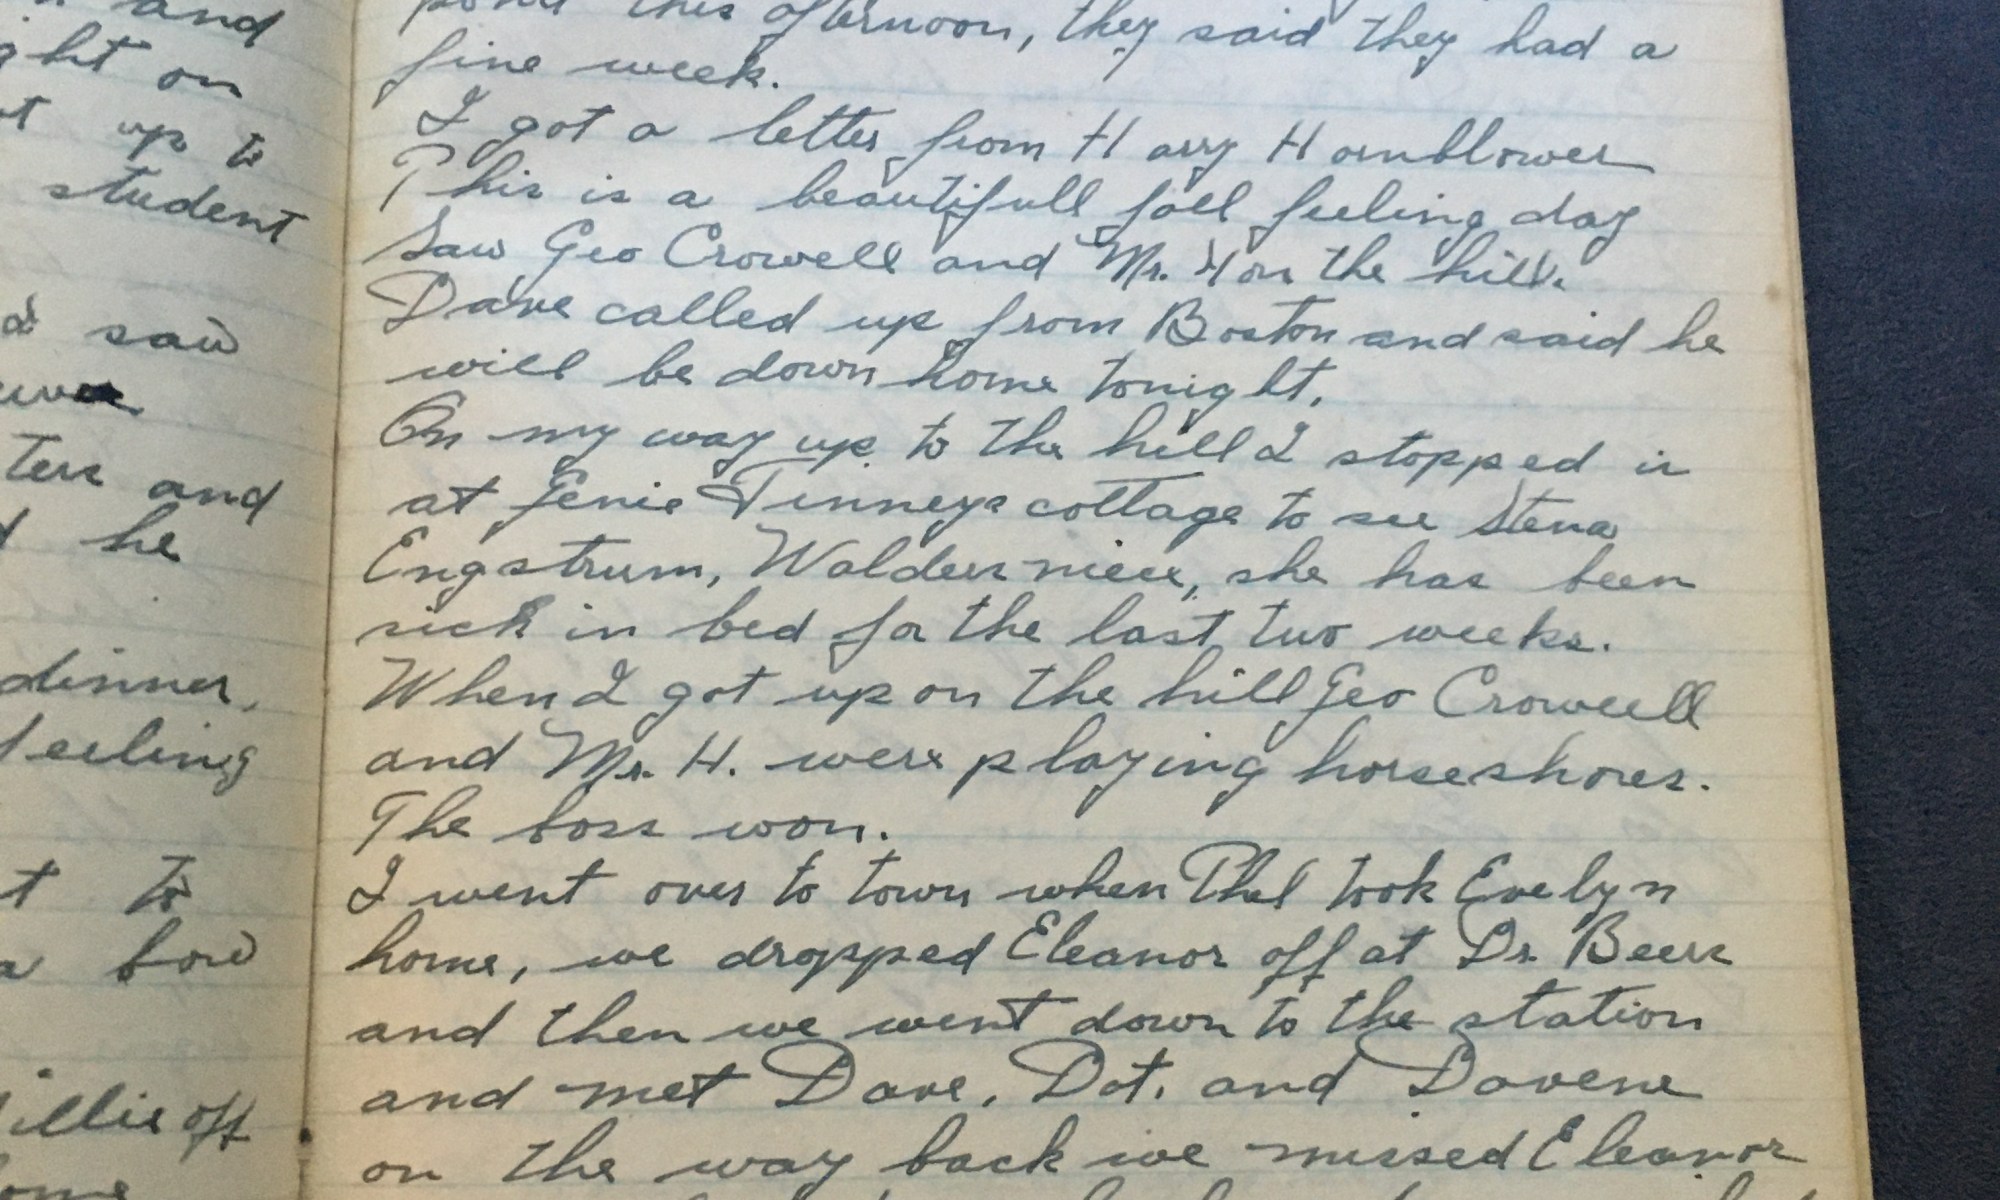 and
ght on
t up to
student
saw
ters and
he
dinner,
feeling
t to
a bow
illie off
ome
pond this afternoon, they said they had a
fine week.
I got a letter from Harry Hornblower
This is a beautifull fall feeling day
Saw Geo Crowell and Mr. H on the hill.
Dave called up from Boston and said he
will be down home tonight.
On my way up to the hill I stopped in
at Genie Tinneys cottage to see Stena
Engstrum, Walders niece, she has been
sick in bed for the last two weeks.
When I got up on the hill Geo Crowell
and Mr. H. were playing horseshoes.
The boss won.
I went over to town when Phil took Evelyn
home, we dropped Eleanor off at Dr Beers
and then we went down to the station
and met Dave, Dot, and Davene
on the way back we missed Eleanor